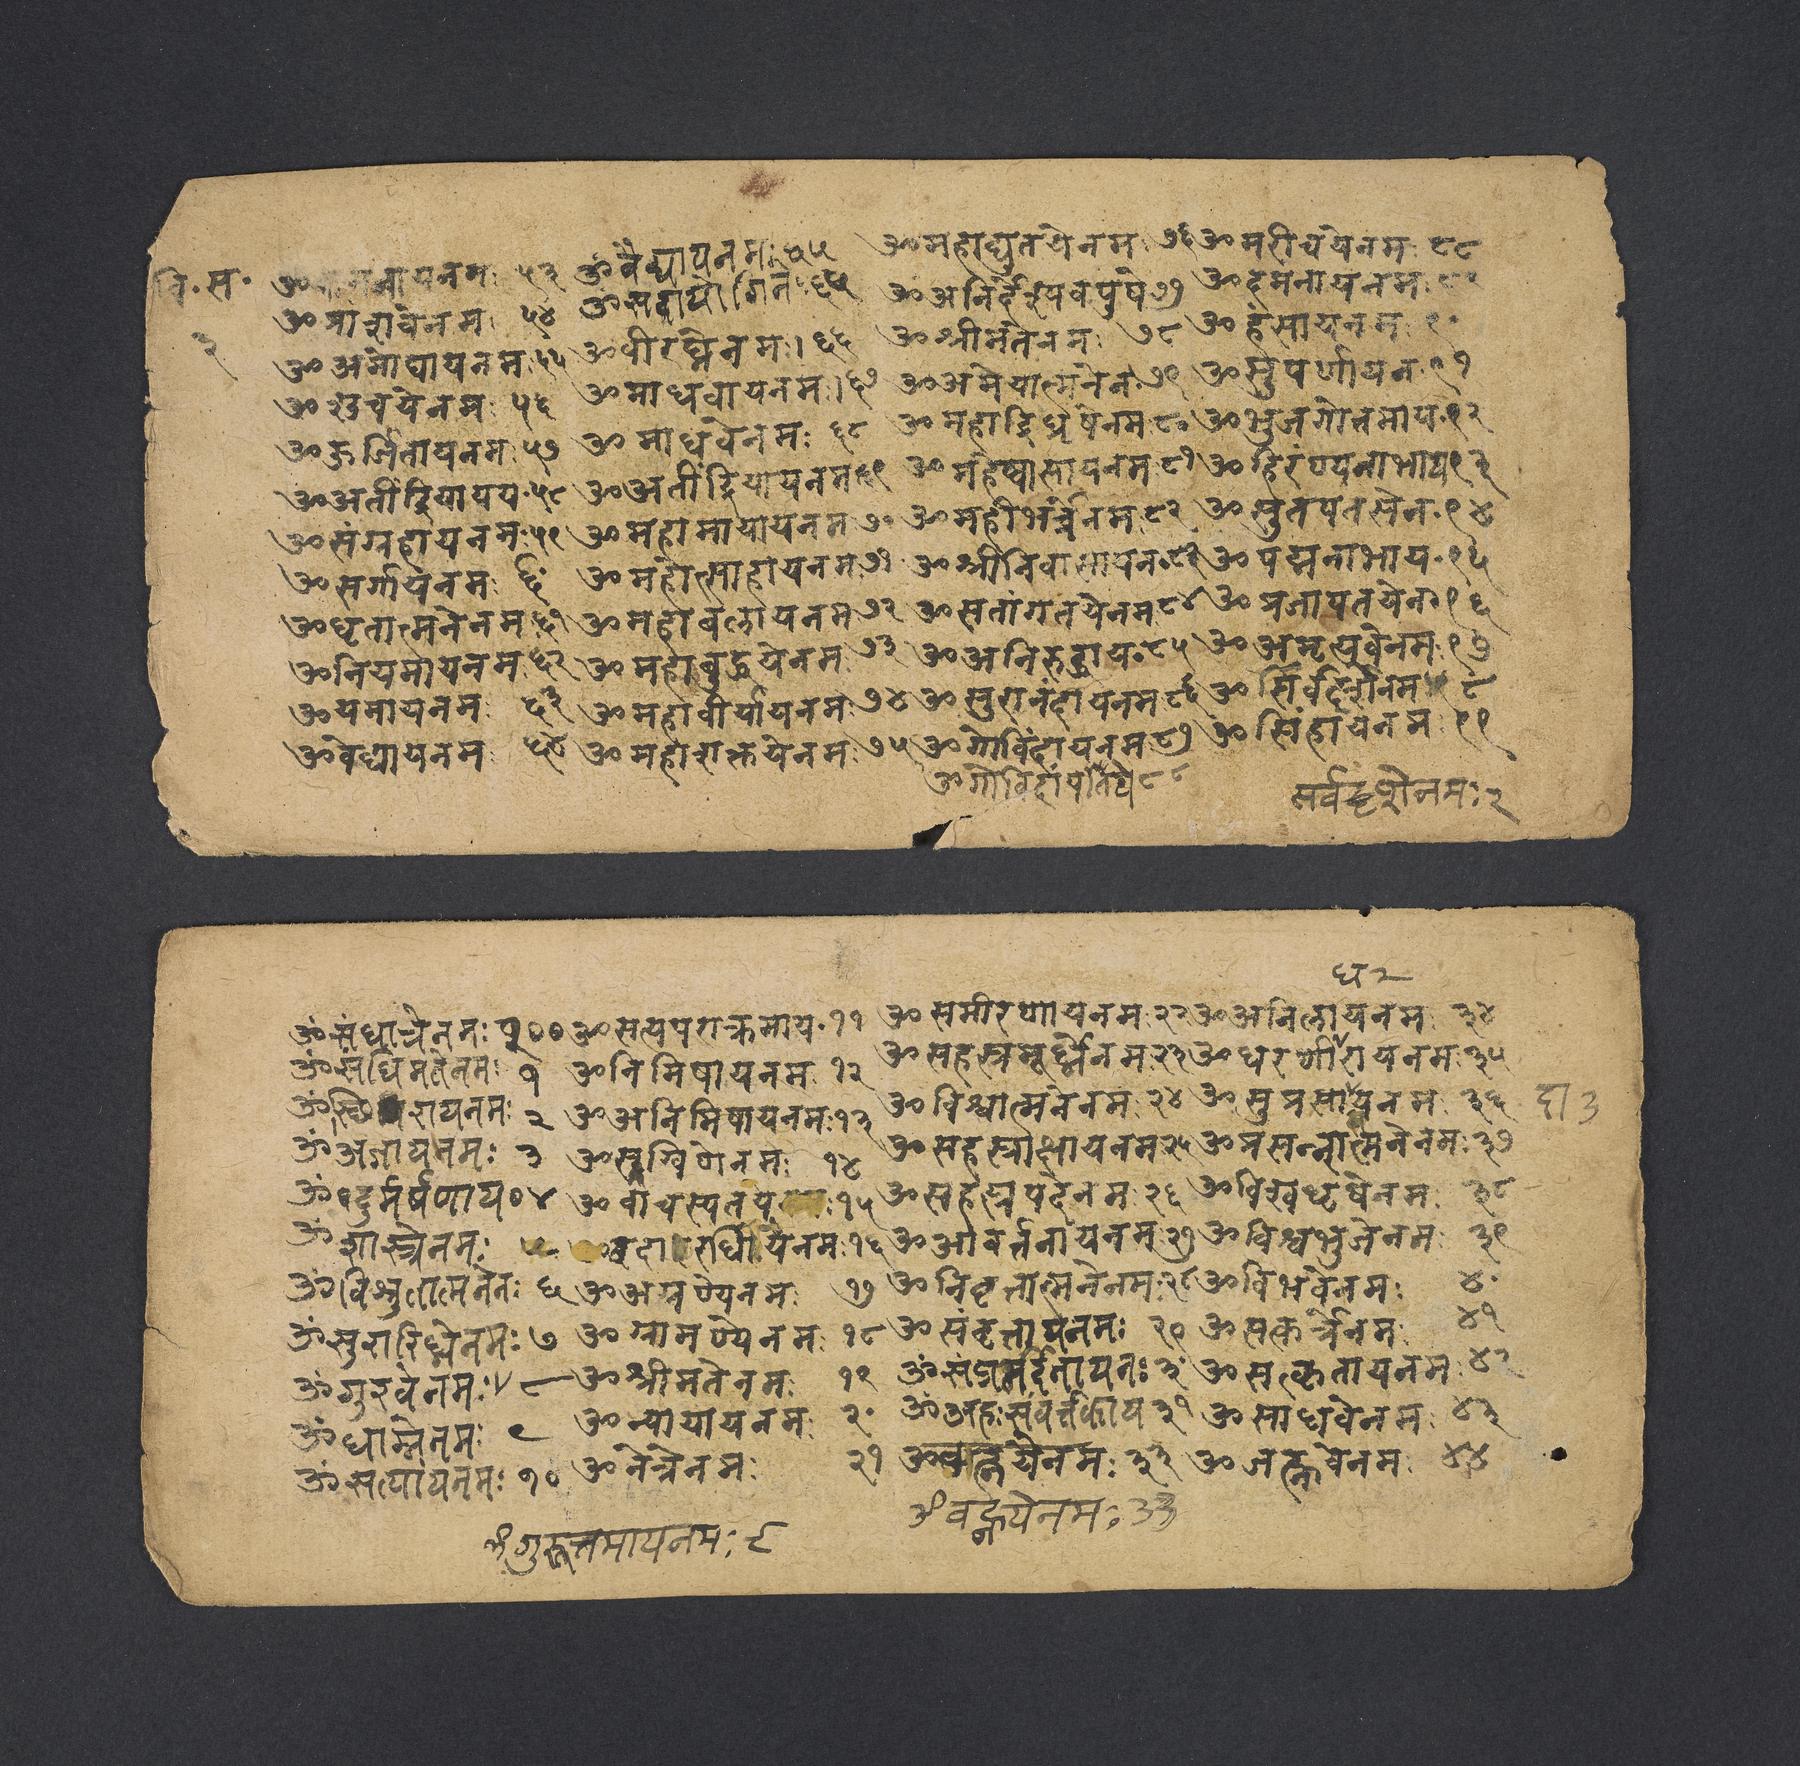 वि॰स॰
३
ॐप्रांशवेनमः ५४
ॐअमोघायनमः५५
ॐशुचयेनमः ५६
ॐऊर्जितायनमः ५७
ॐअतींद्रियायय॰५८
ॐसंग्रहायनमः५९
ॐसर्गायनमः ६॰
ॐधृतात्मनेनमः६१
ॐनियमायनमः६२
ॐयमायनमः ६३
ॐवेद्यायनमः ६४
ॐवैद्यायनमः
ॐसदायोगिने
ॐवीरघ्नेनमः।६६
ॐमाधवायनमः।६७
ॐमाधवेनमः ६८
ॐअतींद्रियायनमः६९
ॐमहामायायनमः७॰
ॐमहोत्साहायनमः७१
ॐमहाबलायनमः७२
ॐमहाबुद्धयेनमः ७३
ॐमहावीर्यायनमः७४
ॐमहाशक्तयेनमः ७५
ॐमहाद्युतयेनमः ७६
ॐअनिर्देश्यवपुषे७७
ॐश्रीमतेनमः ७८
ॐअमेयात्मनेन॰७९
ॐमहाद्रिधृषेनमः८॰
ॐमहेष्वासायनमः८१
ॐमहीभर्त्रेनमः८२
ॐश्रीनिवासायन॰८३
ॐसतांगतयेनमः८४
ॐअनिरुद्धाय॰८५
ॐसुरानंदायनमः८६
ॐगोविंदायनमः८७
ॐगोविदांपतये८८
ॐमरीचयेनमः ८८
ॐदमनायनमः
ॐहंसायनमः ९॰
ॐसुपर्णायन॰९१
ॐभुजगोत्तमाय॰९२
ॐहिरंण्यनाभाय९३
ॐसुतपतसेन॰९४
ॐपद्मनाभाय॰९५
ॐप्रजापतयेन॰९६
ॐअमृत्यवेनमः९७
ॐसिंहायनमः ९९
सर्वदृशेनमः२
ध२
ॐसंधात्रेनमः पू००
ॐसंधिमतेनमः १
२
ॐअजायनमः ३
ॐदुर्मर्षणाय०४
ॐशास्त्रेनमः ५
ॐविश्रुतात्मनेनः ६
ॐसुरारिघ्नेनमः ७
ॐगुरवेनमः ८
ॐधाम्नेनमः ९
ॐसत्यायनमः १०
ॐगुरूत्तमायनमः ८
ॐसत्यपराक्रमाय॰११
ॐनिमिषायनमः १२
ॐअनिमिषायनमः१३
ॐस्रग्विणेनमः १४
ॐवाचस्पतये १५
१६
ॐअग्रण्येनमः १७
ॐग्रामण्येनमः १८
ॐश्रीमतेनमः १९
ॐन्यायायनमः २॰
ॐनेत्रेनमः २१
ॐसमीरणायनमः२२
ॐसहस्रमूर्ध्नेनमः२३
ॐविश्वात्मनेनमः२४
ॐसहस्राक्षायनमः२५
ॐसहस्रपदेनमः२६
ॐआवर्त्तनायनमः२७
ॐनिवृत्तात्मनेनमः२८
ॐसंवृत्तायनमः २९
ॐसंप्रमर्दनायनः३॰
ॐअहःसंवर्त्तकाय३१
ॐवह्नयेनमः ३३
ॐअनिलायनमः ३४
ॐधरणीरायनमः३५
३६
ॐप्रसन्नात्मनेनमः३७
ॐविश्वधृषेनमः ३८
ॐविश्वभुजेनमः ३९
ॐविभवेनमः ४॰
ॐसत्कर्त्रेनमः ४१
ॐसत्कृतायनमः४२
ॐसाधवेनमः ४३
ॐजह्नवेनमः ४४
दा३